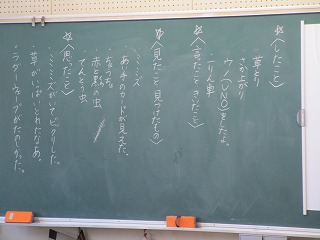 ☆〈したこと〉
草とり
さか上がり
ウノ(UNO)をしたよ。
☆〈言ったこと、きいたこと〉
りん車
☆〈見たこと、見つけたもの〉
・ミミズ
・あい手のカードが見えた。
・赤と黒の虫
てんとう虫
☆〈思ったこと〉
・ミミズがいてビックリした。
草がいっぱいとれたなあ。
がたのしかった。